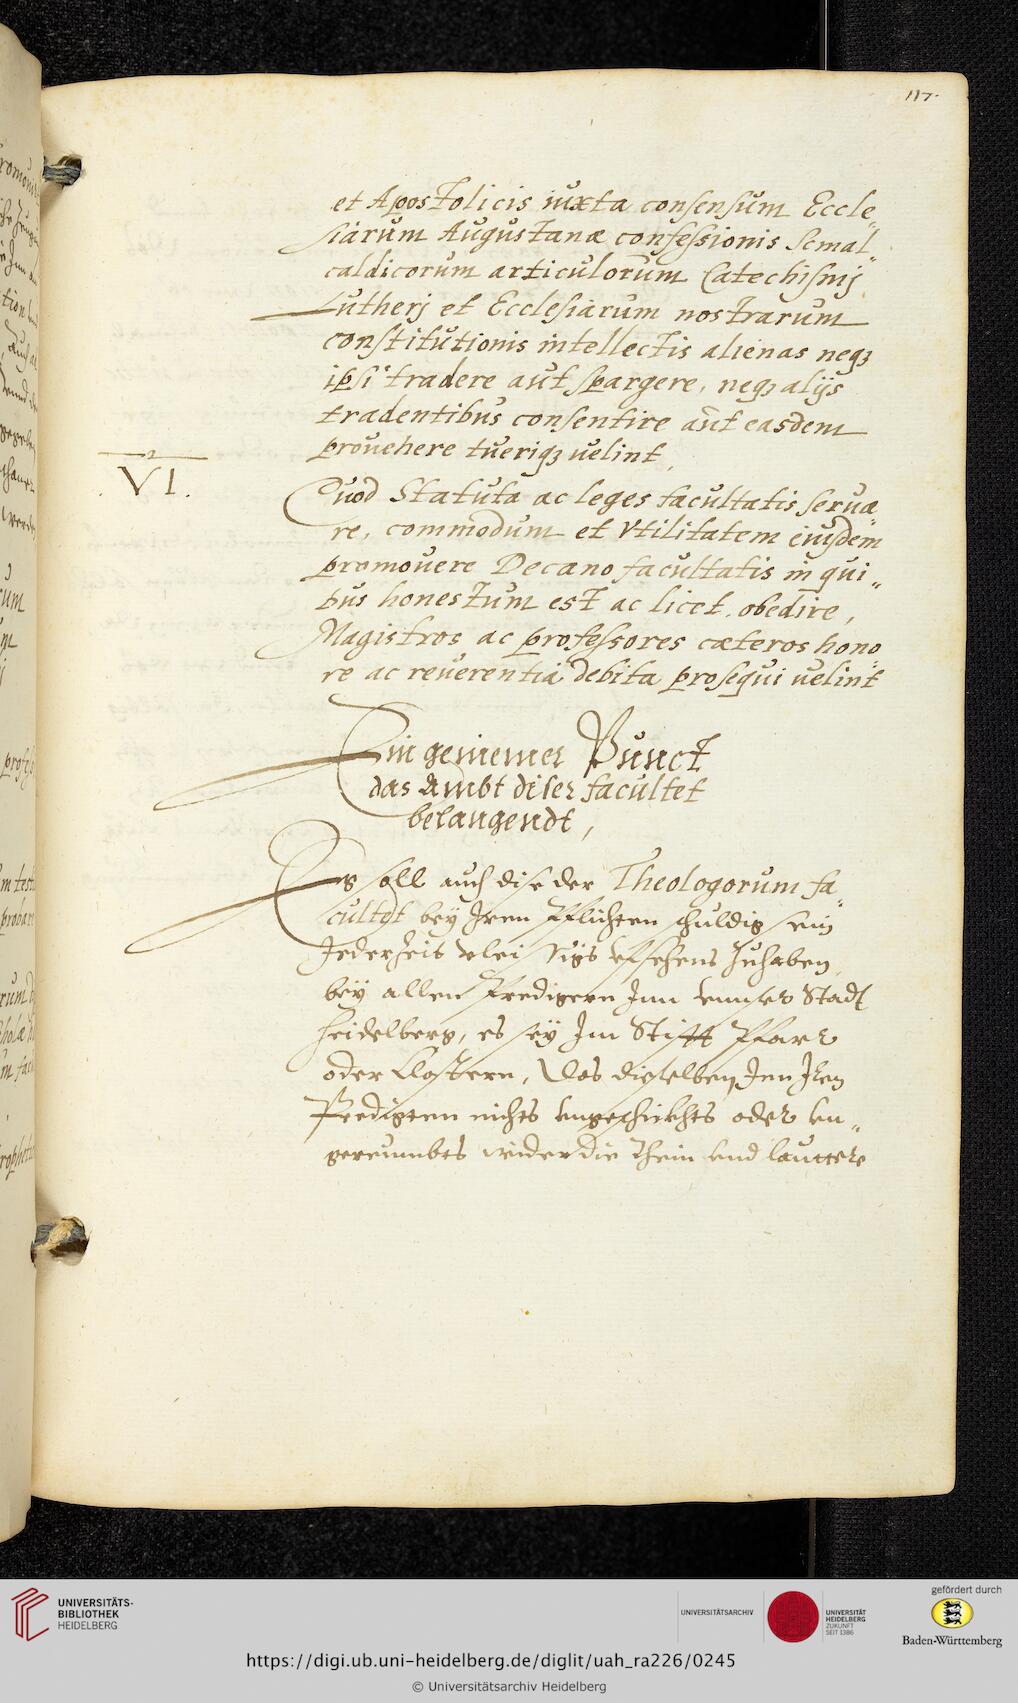 117.
et Apostolicis iuxta consensum Eccle„
siarum Augustanæ confessionis Semal„
caldicorum articulorum Catechismj
Lutherj et Ecclesiarum nostrarum
constitutionis intellectis alienas neqꝫ
ipsi tradere aut spargere, neqꝫ alijs
tradentibus consentire aut easdem
prouehere tueriqꝫ uelint,
VI.
Quod Statuta ac leges facultatis serua„
re, commodum et Vtilitatem eiusdem
promouere Decano facultatis in qui„
bus honestum est ac licet, obedire,
Magistros ac professores cæteros hono„
re ac reuerentia debita prosequi uelint
Ein gemeiner Punct
das Ambt diser facultet
belangendt,
Es soll auch dise der Theologorum fa„
cultet bey Iren Pflichten schuldig sein
Jederzeit vleissigs vfsehens zuhaben,
bey allen Predigern Inn vnnser Stadt
Heidelberg, es sey Im Stifft Pfarr
oder Clostern, Das dieselben Inn Iren
Predigten nichts vngeschickhts oder vn„
gereumbts wider die Rhein vnd lauttere
UNIVERSITÄTS-
BIBLIOTHEK
HEIDELBERG
UNIVERSITÄTSARCHIV
UNIVERSITÄT
HEIDELBERG
ZUKUNFT
SEIT 1386
gefördert durch
Baden-Württemberg
https://digi.ub.uni-heidelberg.de/diglit/uah_ra226/0245
© Universitätsarchiv Heidelberg